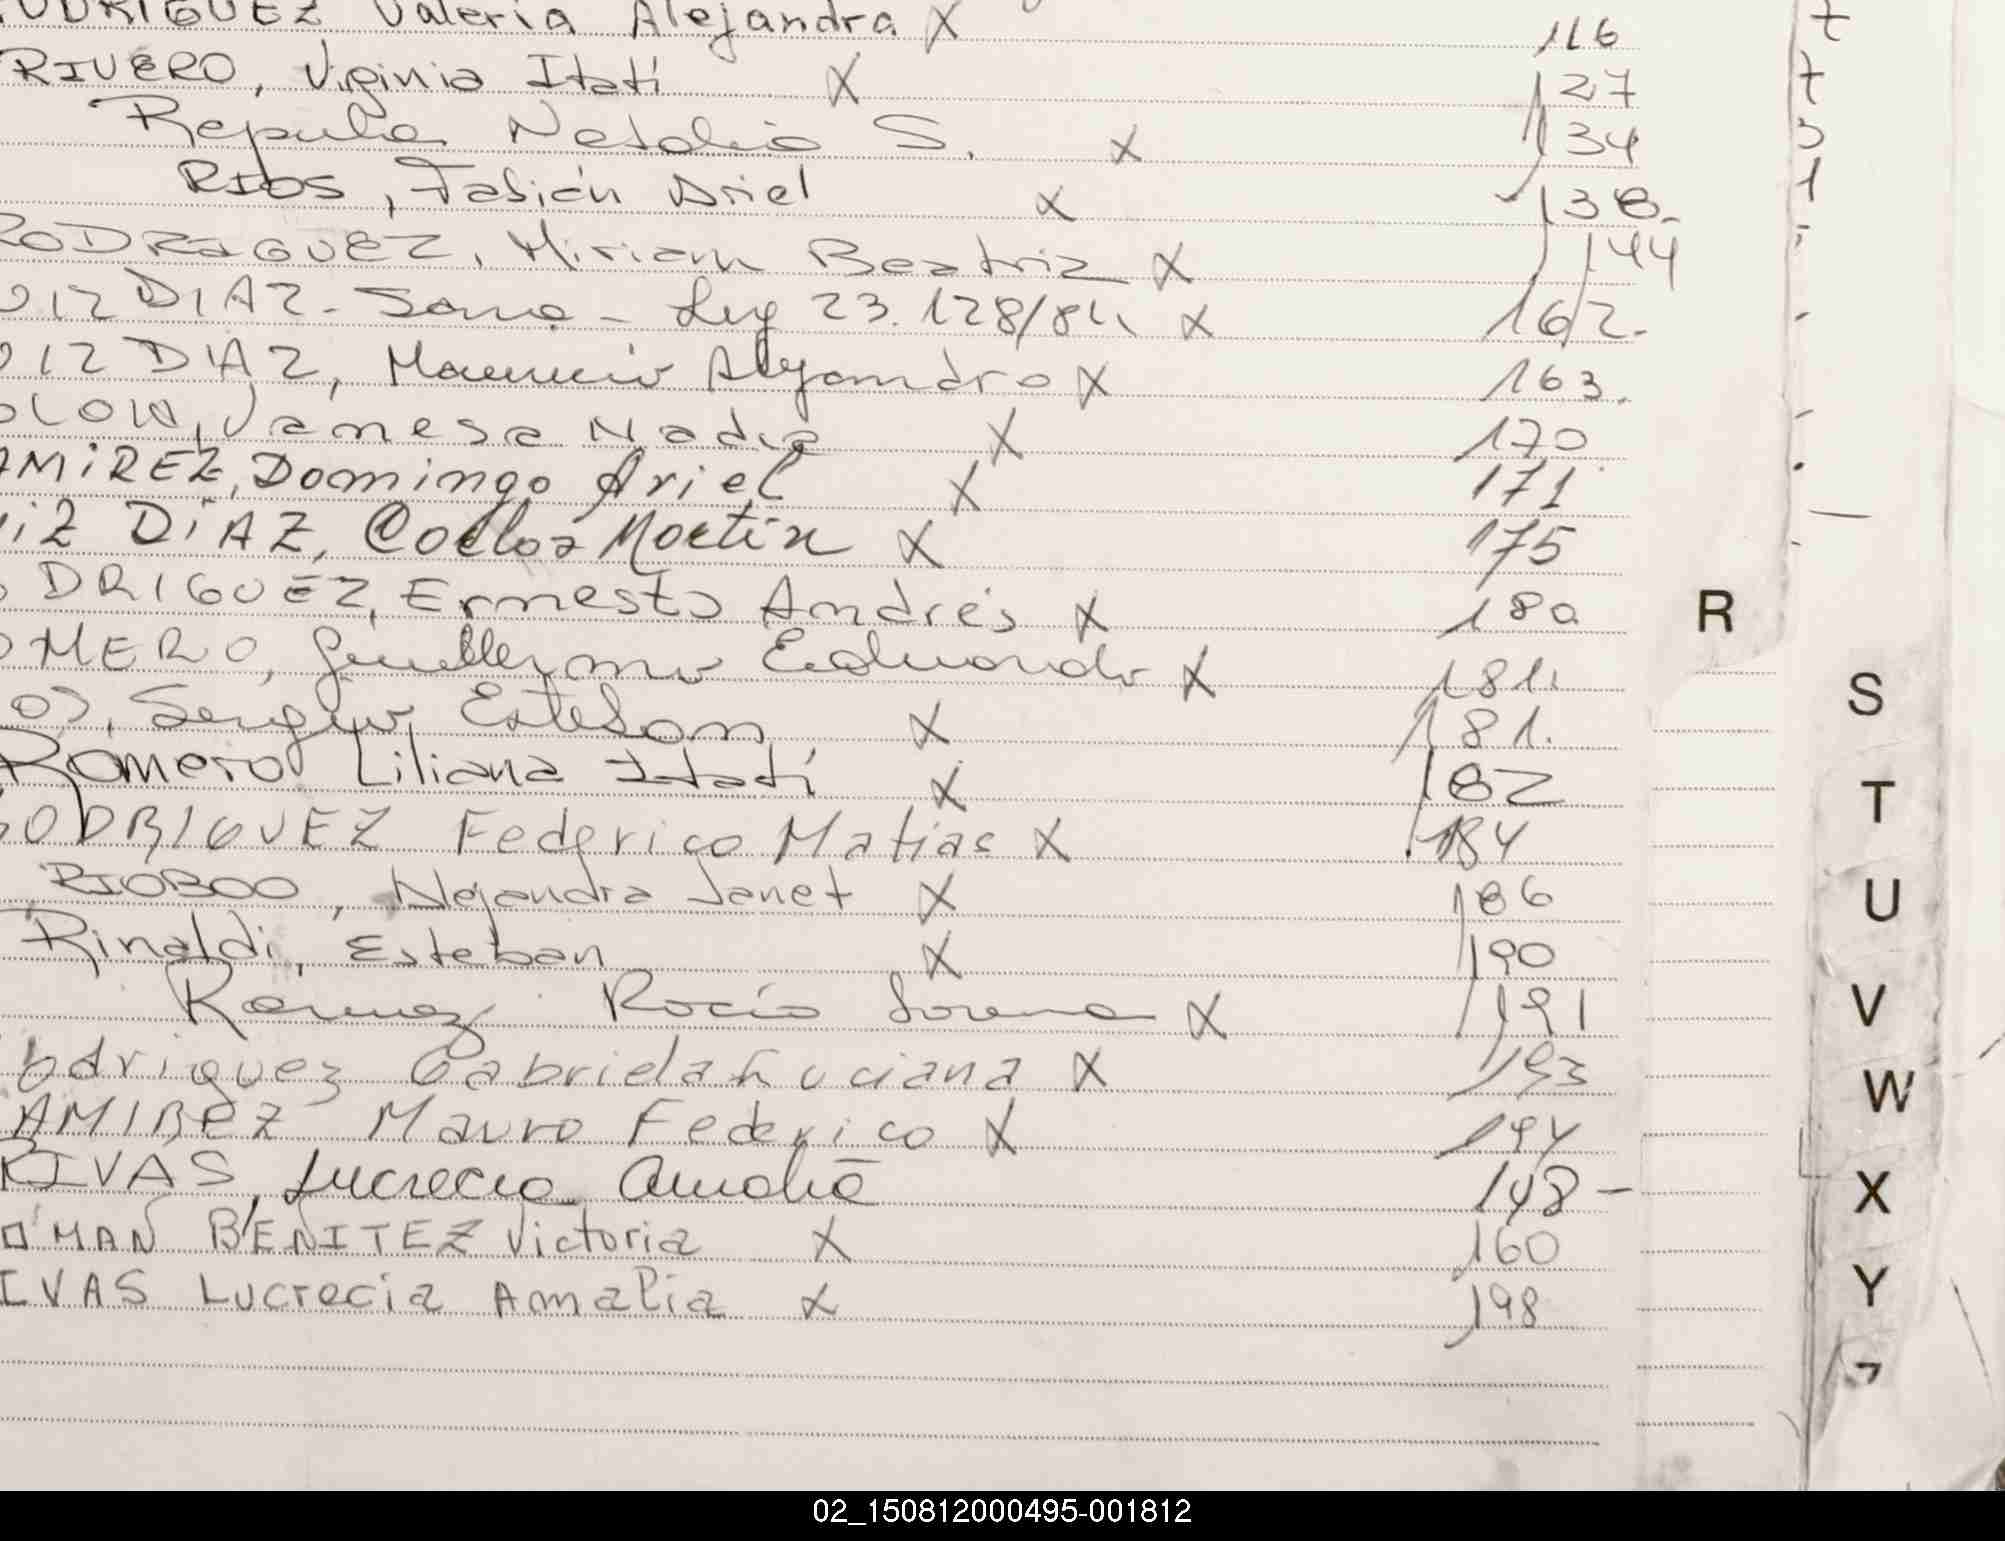 RODRIGUEZ Valeria Alejandra X 116
RIVERO, Virginia Itatí X 127
Natalia S. X 134
RIOS, Fabián Ariel X 138.
RODRIGUEZ, Miriam Beatriz X 144
DIAZ - - Leg 23.128/84 X 162.
DIAZ, Mauricio Alejandro X 163.
OLON, Vanesa Nadia X 170
AMIREZ, Domingo Ariel X 171
IZ DIAZ, Carlos Martin X 175
ODRIGUEZ, Ernesto Andrés X 180
OMERO, Guillermo Eduardo X 181.
OS, Sergio Esteban X 181.
Romero Liliana Itatí X 182
RODRIGUEZ Federico Matias X 184
RIOBOO, Alejandra Janet X 186
Rinaldi, Esteban X 190
Rocío Lorena X 191
odriguez Gabriela Luciana X 193
AMIREZ Mauro Federico X 194
RIVAS, Lucrecia Amalia 148 -
OMAN BENITEZ Victoria X 160
IVAS Lucrecia Amalia X 198
R
S
T
U
V
W
X
Y
02_150812000495-001812